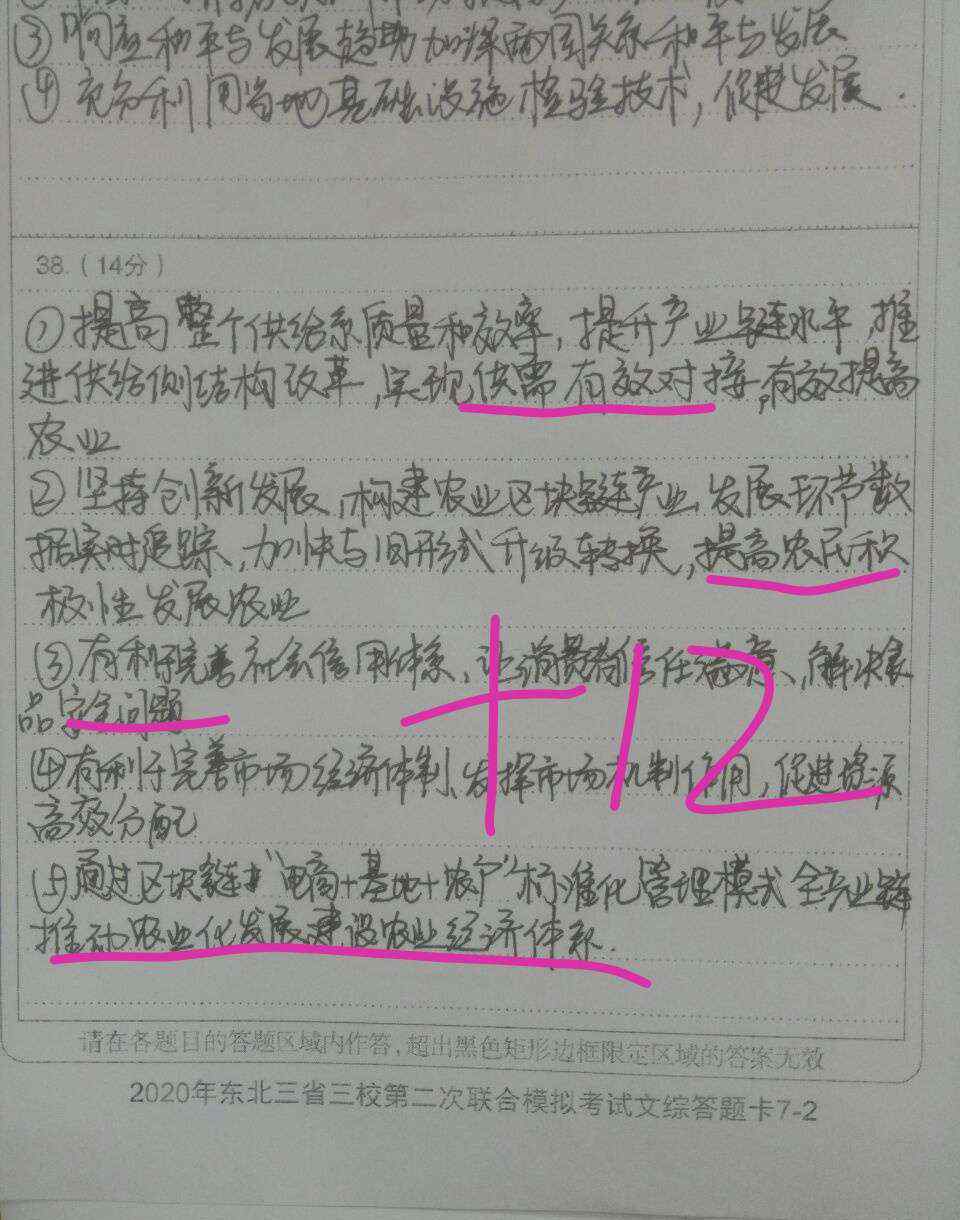 ③响应和平与发展趋势加深两国关系和平与发展
④充分利用当地基础设施检验技术，促进发展.
38.（14分）
①提高整个供给系质量和效率，提升产业链水平，推
进供给侧结构改革，实现供需有效对接，有效提高
农业
②坚持创新发展，构建农业区块链产业，发展环节数
据实时追踪、加快与旧形式升级转换，提高农民积
极性发展农业
③有利于完善社会信用体系、让消费者信任 解决食
品安全问题
④有利于完善市场经济体制、发挥市场机制作用，促进资源
高效分配
⑤通过区块链 "电商+基地+农户"标准化管理模式 全产业链
推动农业化发展建设农业经济体系.
+12
请在各题目的答题区域内作答，超出黑色矩形边框限定区域的答案无效
2020年东北三省三校第二次联合模拟考试文综答题卡7-2